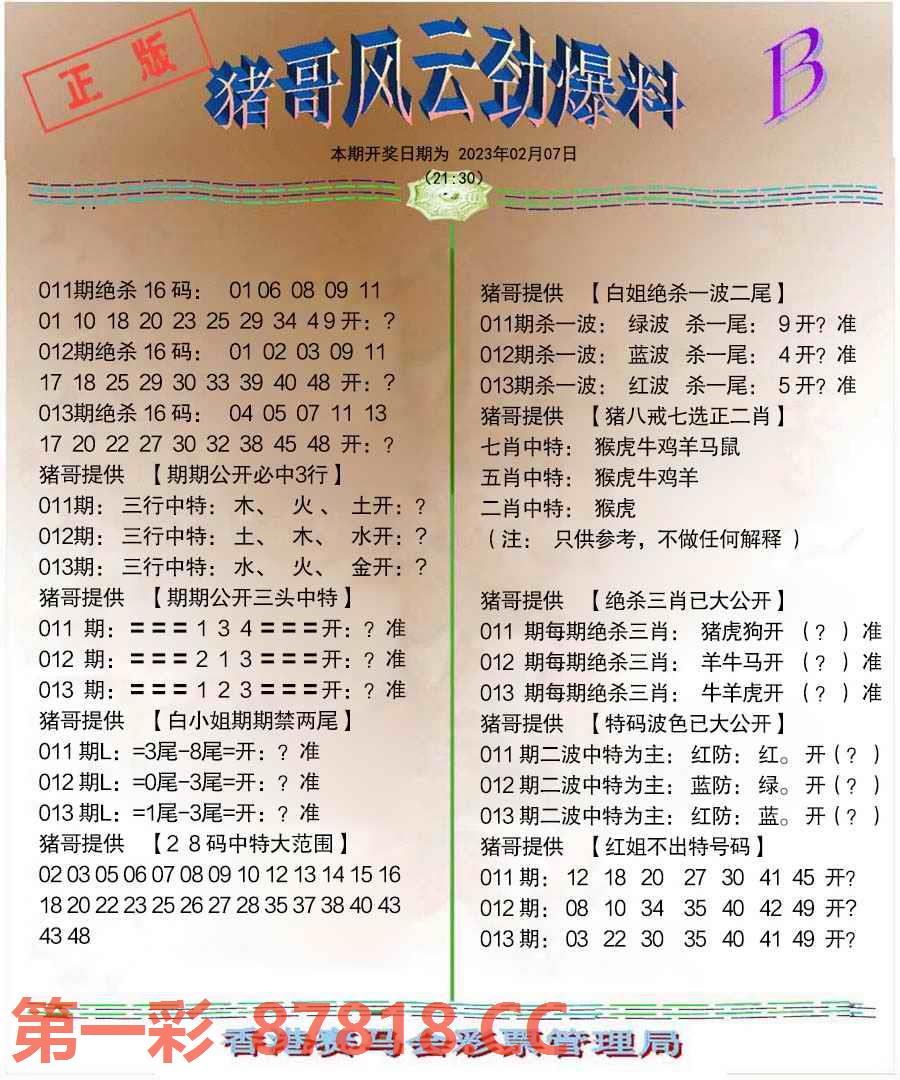 正版
猪哥风云劲爆料
B
本期开奖日期为 2023年02月07日
(21:30)
011期绝杀 16 码： 01 06 08 09 11
01 10 18 20 23 25 29 34 49 开：?
012期绝杀 16 码： 01 02 03 09 11
17 18 25 29 30 33 39 40 48 开：?
013期绝杀 16 码： 04 05 07 11 13
17 20 22 27 30 32 38 45 48 开：?
猪哥提供 【期期公开必中3行】
011期： 三行中特： 木、 火、 土开：?
012期： 三行中特： 土、 木、 水开：?
013期： 三行中特： 水、 火、 金开：?
猪哥提供 【期期公开三头中特】
011 期：＝＝＝ 1 3 4 ＝＝＝开：? 准
012 期：＝＝＝ 2 1 3 ＝＝＝开：? 准
013 期：＝＝＝ 1 2 3 ＝＝＝开：? 准
猪哥提供 【白小姐期期禁两尾】
011 期L：=3尾-8尾=开：? 准
012 期L：=0尾-3尾=开：? 准
013 期L：=1尾-3尾=开：? 准
猪哥提供 【２８码中特大范围】
02 03 05 06 07 08 09 10 12 13 14 15 16
18 20 22 23 25 26 27 28 35 37 38 40 43
43 48
猪哥提供 【白姐绝杀一波二尾】
011期杀一波： 绿波 杀一尾： 9 开? 准
012期杀一波： 蓝波 杀一尾： 4 开? 准
013期杀一波： 红波 杀一尾： 5 开? 准
猪哥提供 【猪八戒七选正二肖】
七肖中特： 猴虎牛鸡羊马鼠
五肖中特： 猴虎牛鸡羊
二肖中特： 猴虎
(注： 只供参考，不做任何解释 )
猪哥提供 【绝杀三肖已大公开】
011 期每期绝杀三肖： 猪虎狗开 (?) 准
012 期每期绝杀三肖： 羊牛马开 (?) 准
013 期每期绝杀三肖： 牛羊虎开 (?) 准
猪哥提供 【特码波色已大公开】
011 期二波中特为主： 红防： 红。开(?)
012 期二波中特为主： 蓝防： 绿。开(?)
013 期二波中特为主： 红防： 蓝。开(?)
猪哥提供 【红姐不出特号码】
011 期： 12 18 20 27 30 41 45 开?
012 期： 08 10 34 35 40 42 49 开?
013 期： 03 22 30 35 40 41 49 开?
第一彩 87818.CC
香港赛马会彩票管理局